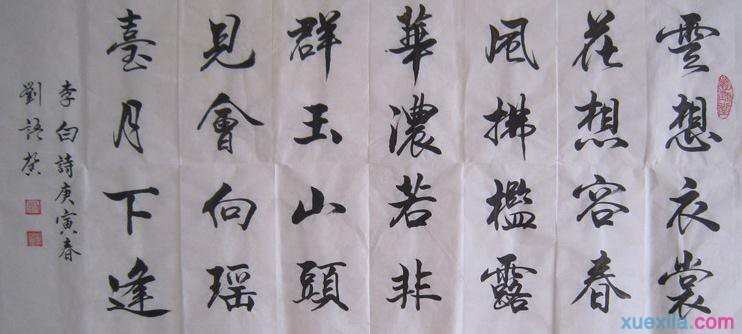 雲想衣裳
花想容春
風拂檻露
華濃若非
群玉山頭
見會向瑶
臺月下逢
李白詩庚寅春
劉語
xuexila.com